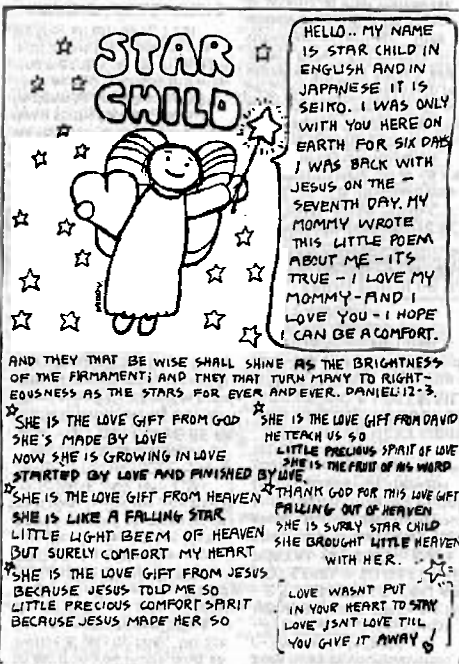 STAR
CHILD
HELLO.. MY NAME
IS STAR CHILD IN
ENGLISH AND IN
JAPANESE IT IS
SEIKO. I WAS ONLY
WITH YOU HERE ON
EARTH FOR SIX DAYS
I WAS BACK WITH
JESUS ON THE –
SEVENTH DAY. MY
MOMMY WROTE
THIS LITTLE POEM
ABOUT ME – ITS
TRUE – I LOVE MY
MOMMY – AND I
LOVE YOU – I HOPE
I CAN BE A COMFORT.
AND THEY THAT BE WISE SHALL SHINE AS THE BRIGHTNESS
OF THE FIRMAMENT; AND THEY THAT TURN MANY TO RIGHT-
EOUSNESS AS THE STARS FOR EVER AND EVER. DANIEL:12-3.
SHE IS THE LOVE GIFT FROM GOD
SHE'S MADE BY LOVE
NOW SHE IS GROWING IN LOVE
STARTED BY LOVE AND FINISHED BY LOVE.
SHE IS THE LOVE GIFT FROM HEAVEN
SHE IS LIKE A FALLING STAR
LITTLE LIGHT BEEM OF HEAVEN
BUT SURELY COMFORT MY HEART
SHE IS THE LOVE GIFT FROM JESUS
BECAUSE JESUS TOLD ME SO
LITTLE PRECIOUS COMFORT SPIRIT
BECAUSE JESUS MADE HER SO
SHE IS THE LOVE GIFT FROM DAVID
HE TEACH US SO
LITTLE PRECIOUS SPIRIT OF LOVE
SHE IS THE FRUIT OF HIS WORD
THANK GOD FOR THIS LOVE GIFT
FALLING OUT OF HEAVEN
SHE IS SURLY STAR CHILD
SHE BROUGHT LITTLE HEAVEN
WITH HER.
LOVE WASNT PUT
IN YOUR HEART TO STAY
LOVE ISNT LOVE TILL
YOU GIVE IT AWAY!